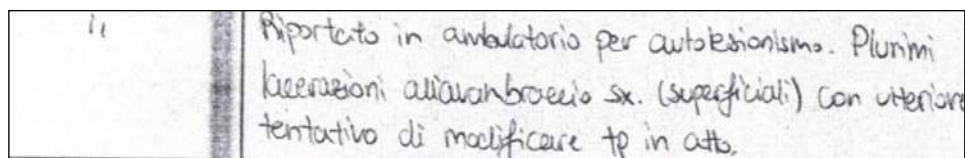 il
Riportato in ambulatorio per autolesionismo. Plurimi
lacerazioni all'avanbraccio sx. (superficiali) con ulteriore
tentativo di modificare tp in atto.